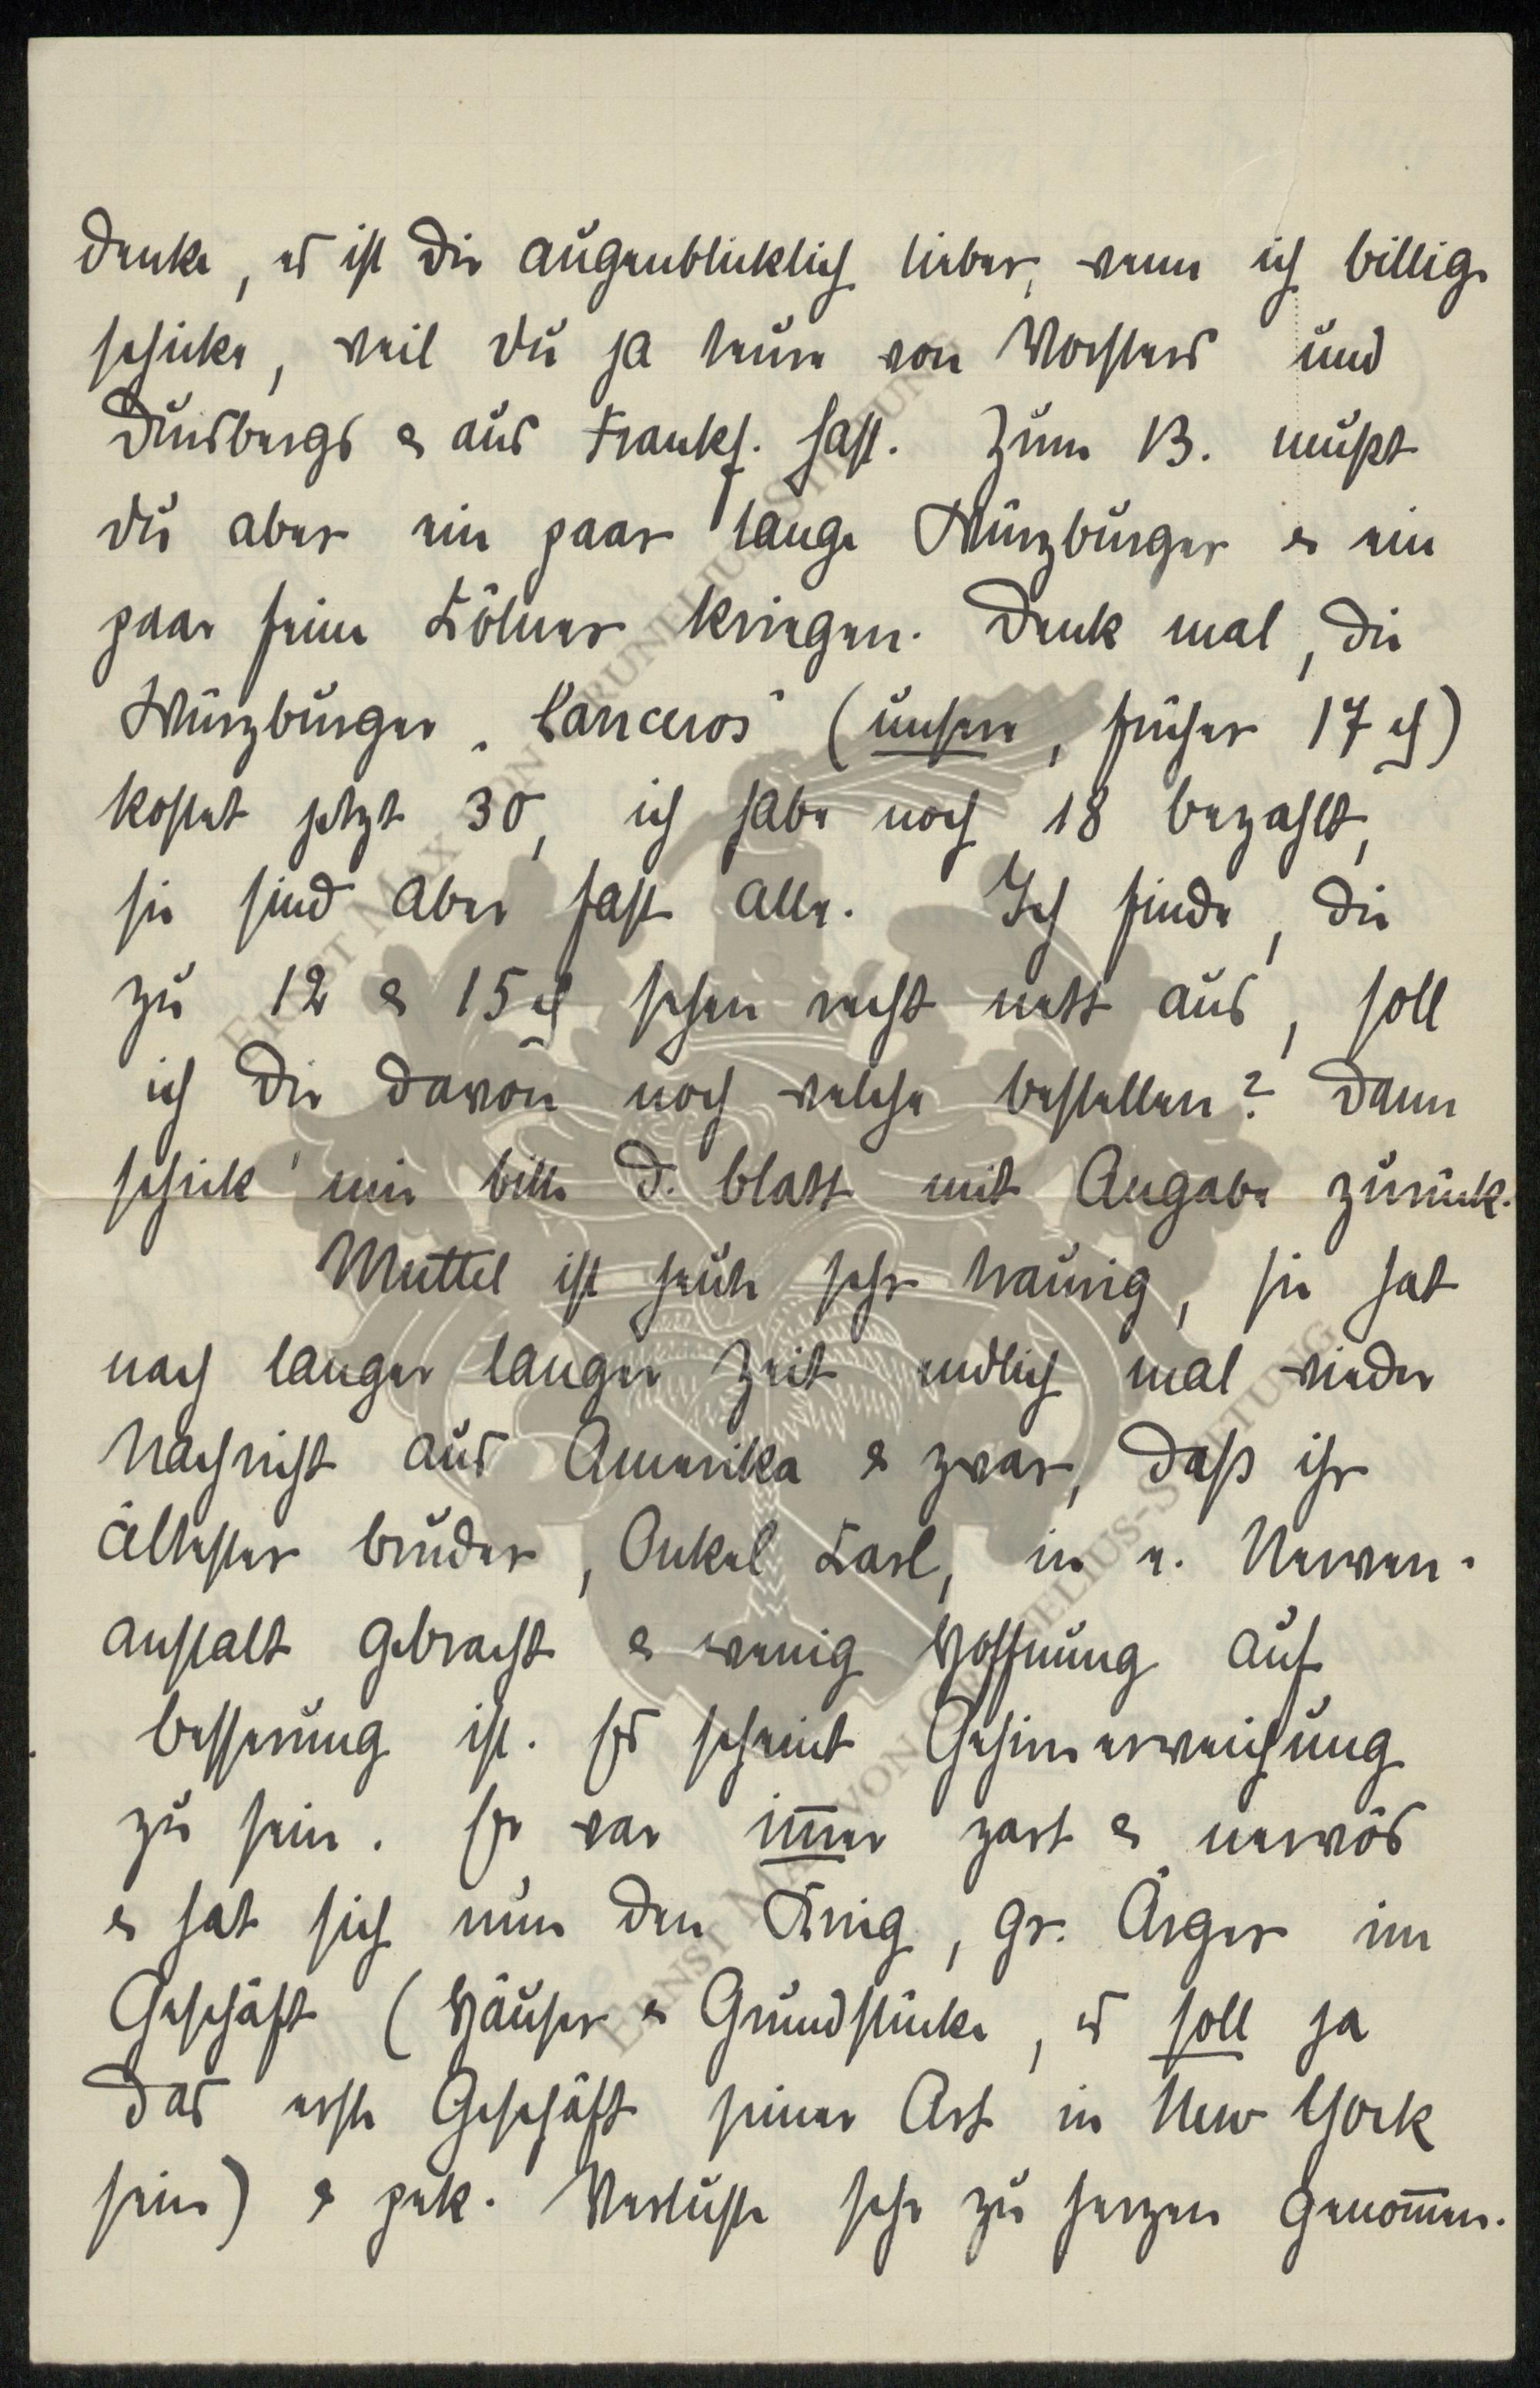 denke, es ist Dir augenblicklich lieber, wenn ich billige
schicke, weil Du ja teure von Vorsters und
Duisbergs & aus Frankf. hast. Zum 13. mußt
Du aber ein paar lange Würzburger & ein
paar feine Kölner kriegen. Denk mal, die
Würzburger „Lanceros" (unsere, früher 17 ₰)
kostet jetzt 30, ich habe noch 18 bezahlt,
sie sind aber fast alle. Ich finde, die
zu 12 & 15 ₰ sehen recht nett aus, soll
ich Dir davon noch welche bestellen? Dann
schick mir bitte d. Blatt mit Angabe zurück.
Muttel ist heute sehr traurig, sie hat
nach langer langer Zeit endlich mal wieder
Nachricht aus Amerika & zwar, daß ihr
ältester Bruder, Onkel Karl, in e. Nerven-
anstalt gebracht & wenig Hoffnung auf
Besserung ist. Es scheint Gehirnerweichung
zu sein. Er war im̅er zart & nervös
& hat sich nun den Krieg, gr. Ärger im
Geschäft (Häuser & Grundstücke, es soll ja
das erste Geschäft seiner Art in New York
sein) & pek. Verluste sehr zu Herzen genom̅en.
ERNST MAX VON GRUNELIUS-STIFTUNG
ERNST MAX VON GRUNELIUS-STIFTUNG